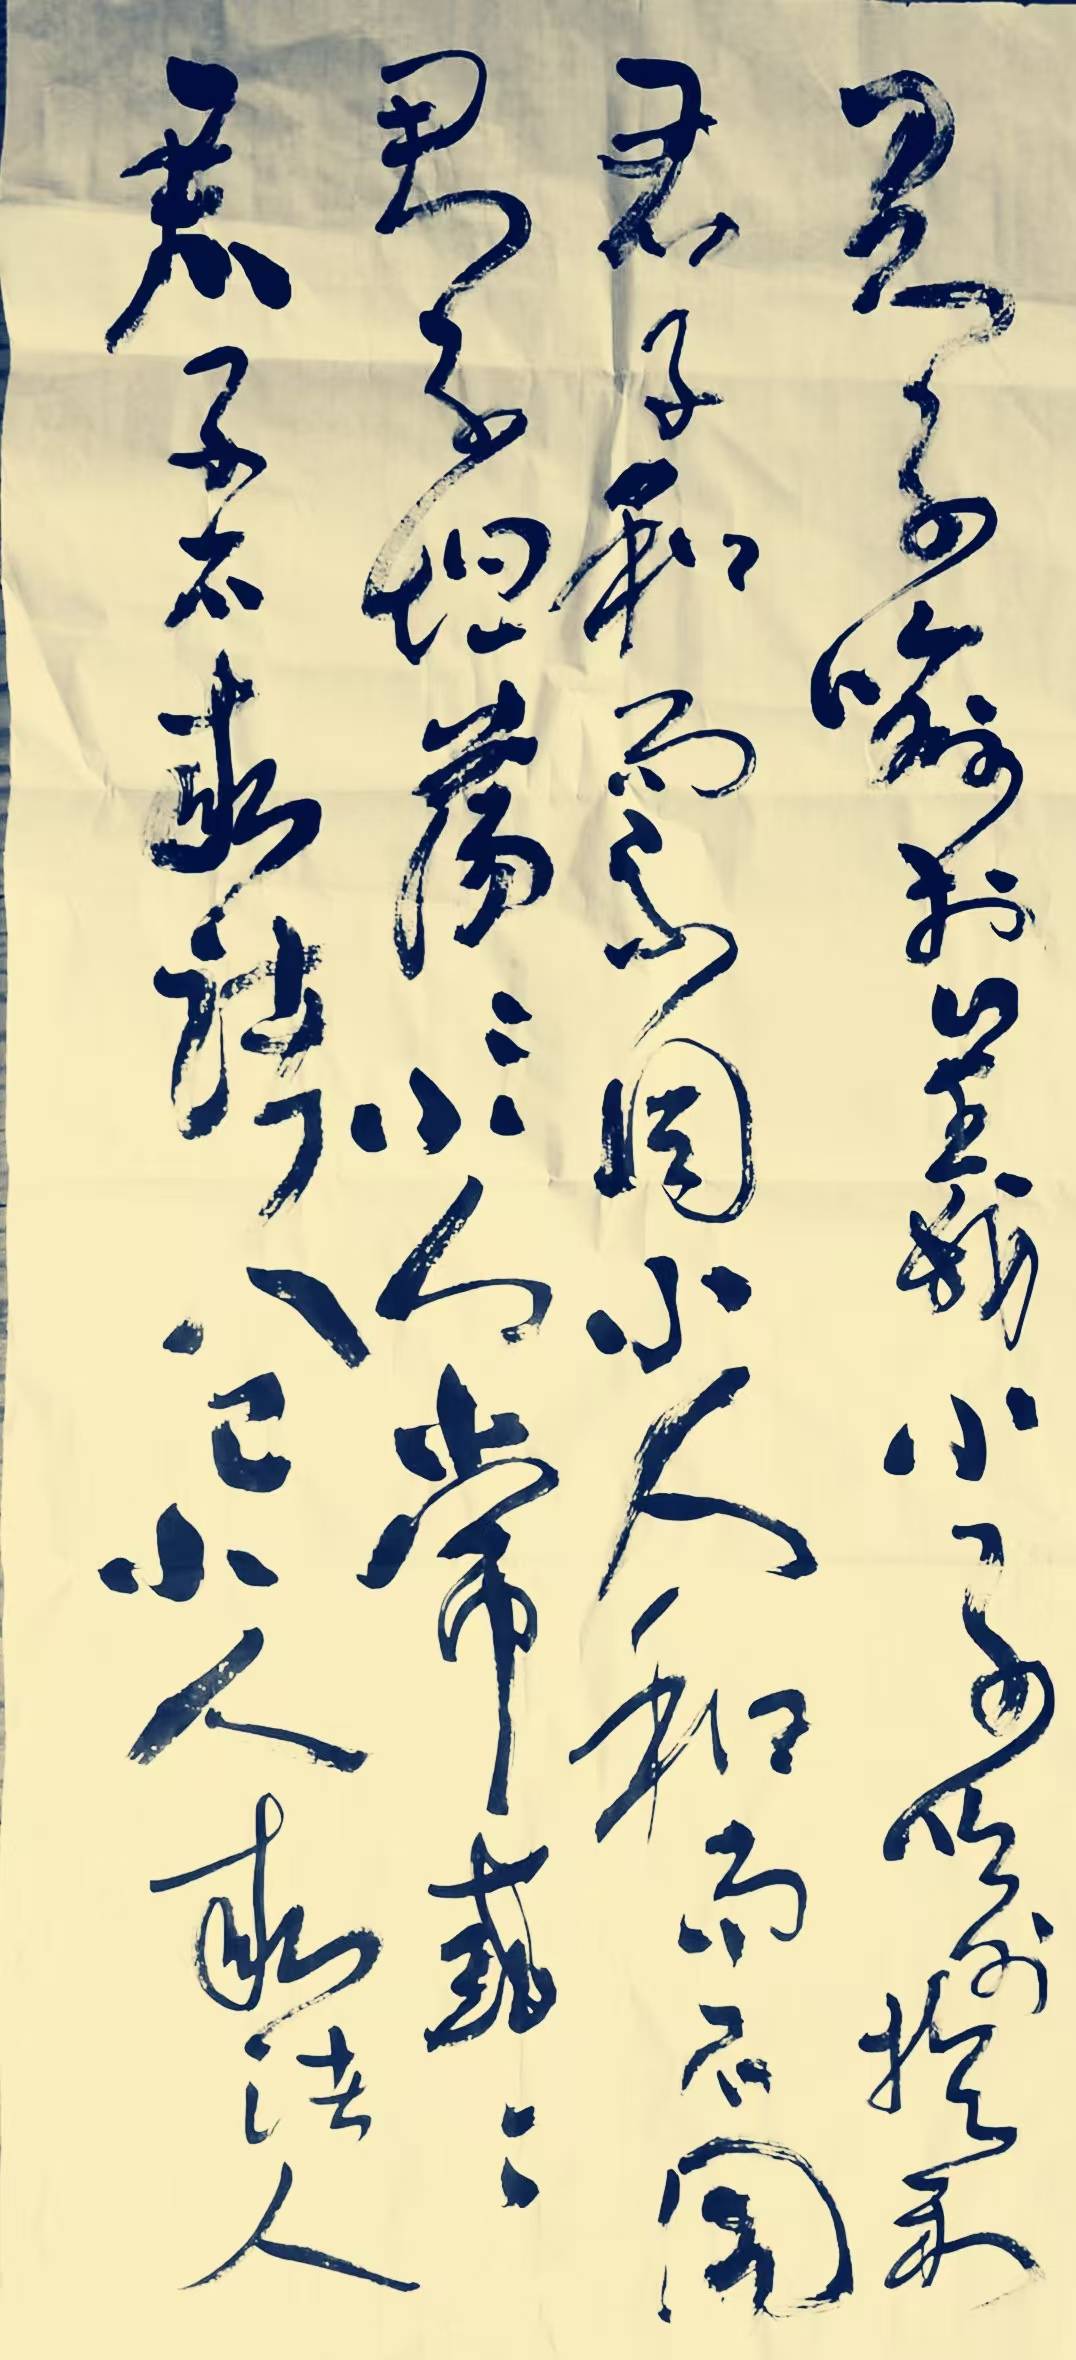 君子喻於義小子喻於利
君子和而不同小人和而不同
君子坦蕩〻小人常戚〻
君子不求諸己小人求諸人